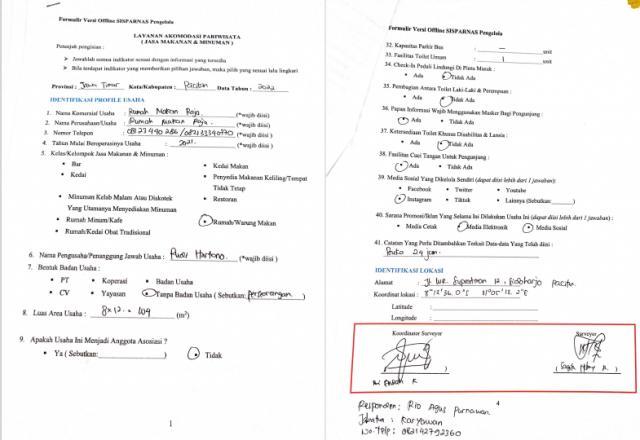 Formulir Versi Offline SISPARNAS Pengelola
LAYANAN AKOMODASI PARIWISATA
( JASA MAKANAN & MINUMAN )
Petunjuk pengisian :
Jawablah semua indikator sesuai dengan informasi yang tersedia
Bila terdapat indikator yang memberikan pilihan jawaban, maka pilih yang sesuai lalu lingkari
Provinsi : Jawa Timur Kota/Kabupaten : Pacitan Data Tahun : 2022
IDENTIFIKASI PROFILE USAHA
1. Nama Komersial Usaha : Rumah Makan Raja (*wajib diisi)
2. Nama Perusahaan/Usaha : Rumah Makan Raja (*wajib diisi)
3. Nomor Telepon : (*wajib diisi)
4. Tahun Mulai Beroperasinya Usaha : 2021 (*wajib diisi)
5. Kelas/Kelompok Jasa Makanan & Minuman :
Bar
Kedai Makan
Kedai
Penyedia Makanan Keliling/Tempat
Tidak Tetap
Minuman Kelab Malam Atau Diskotek
Restoran
Yang Utamanya Menyediakan Minuman
Rumah Minum/Kafe
Rumah/Warung Makan
Rumah/Kedai Obat Tradisional
6. Nama Pengusaha/Penanggung Jawab Usaha : Rudi Hartono (*wajib diisi)
7. Bentuk Badan Usaha :
PT Koperasi Badan Usaha
CV Yayasan Tanpa Badan Usaha ( Sebutkan: perseorangan )
8. Luas Area Usaha : (m²)
9. Apakah Usaha Ini Menjadi Anggota Asosiasi ?
Ya ( Sebutkan: ) Tidak
1
Formulir Versi Offline SISPARNAS Pengelola
32. Kapasitas Parkir Bus : — unit
33. Fasilitas Toilet Umum : 1 unit
34. Check-In Peduli Lindungi Di Pintu Masuk :
Ada Tidak Ada
35. Pembagian Antara Toilet Laki-Laki & Perempuan :
Ada Tidak Ada
36. Papan Informasi Wajib Menggunakan Masker Bagi Pengunjung :
Ada Tidak Ada
37. Ketersediaan Toilet Khusus Disabilitas & Lansia :
Ada Tidak Ada
38. Fasilitas Cuci Tangan Untuk Pengunjung :
Ada Tidak Ada
39. Media Sosial Yang Dikelola Sendiri (dapat diisi lebih dari 1 jawaban):
Facebook Twitter Youtube
Instagram Tiktok Lainnya (Sebutkan: )
40. Sarana Promosi/Iklan Yang Selama Ini Dilakukan Usaha Ini (dapat diisi lebih dari 1 jawaban) :
Media Cetak Media Elektronik Media Sosial
41. Catatan Yang Perlu Ditambahkan Terkait Data-data Yang Telah diisi :
Buka 24 jam.
IDENTIFIKASI LOKASI
Alamat : Jl. WR. Supratman 12, Sidoharjo Pacitan
Koordinat lokasi :
Latitude :
Longitude :
Koordinator Surveyor
Surveyor
4
Responden: Rio Agus Purnawan
Jabatan : Karyawan
No. Telp : 082142792360